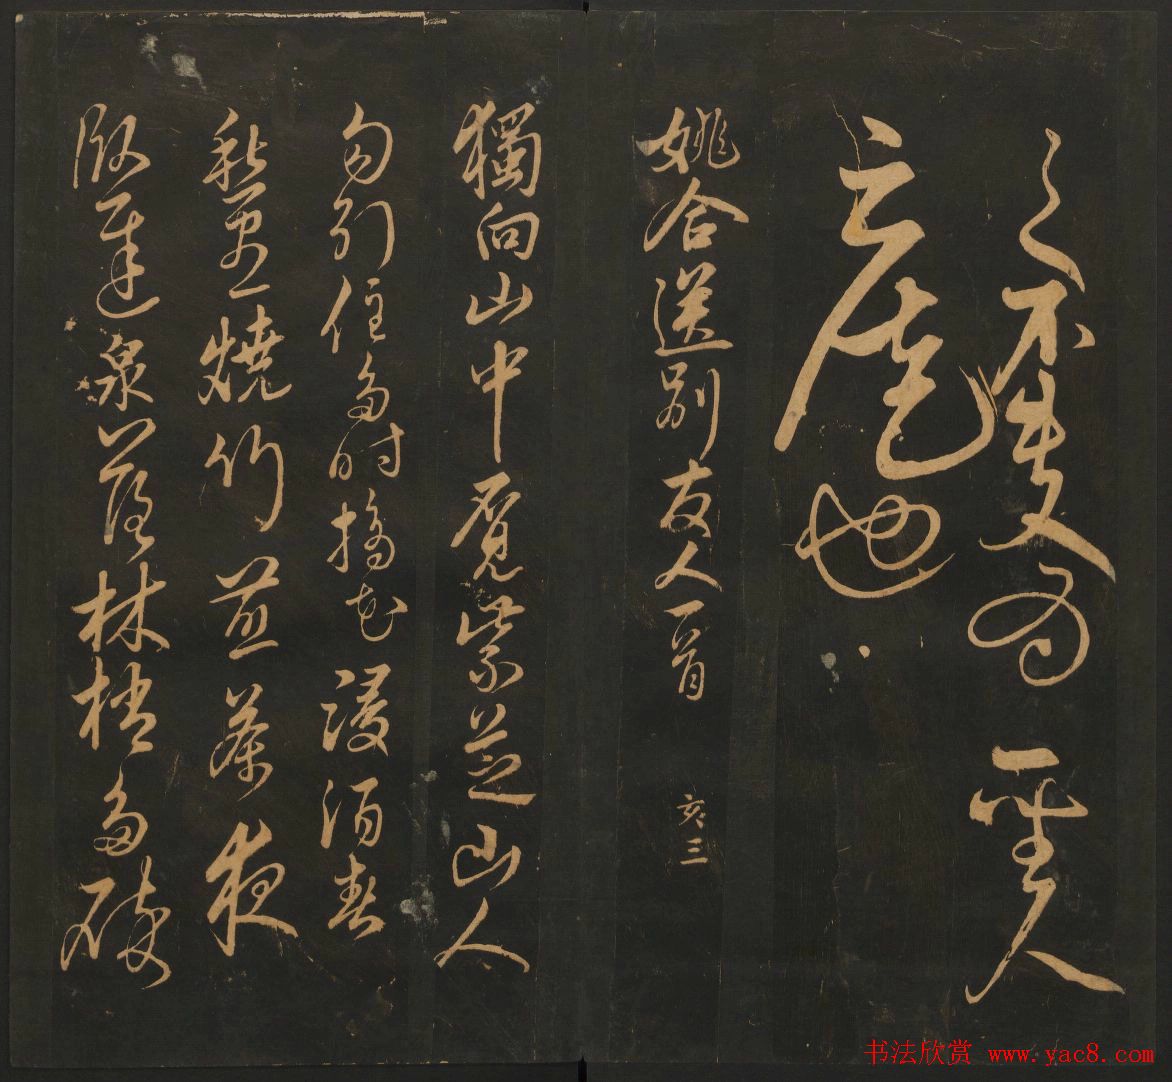 之不為聖人
也
姚合送別友人一首 亥三
獨向山中覓紫芝山人
勾引住多時摘花浸酒春
愁盡燒竹煎茶夜
臥遲泉落林梢多碎
书法欣赏 www.yac8.com